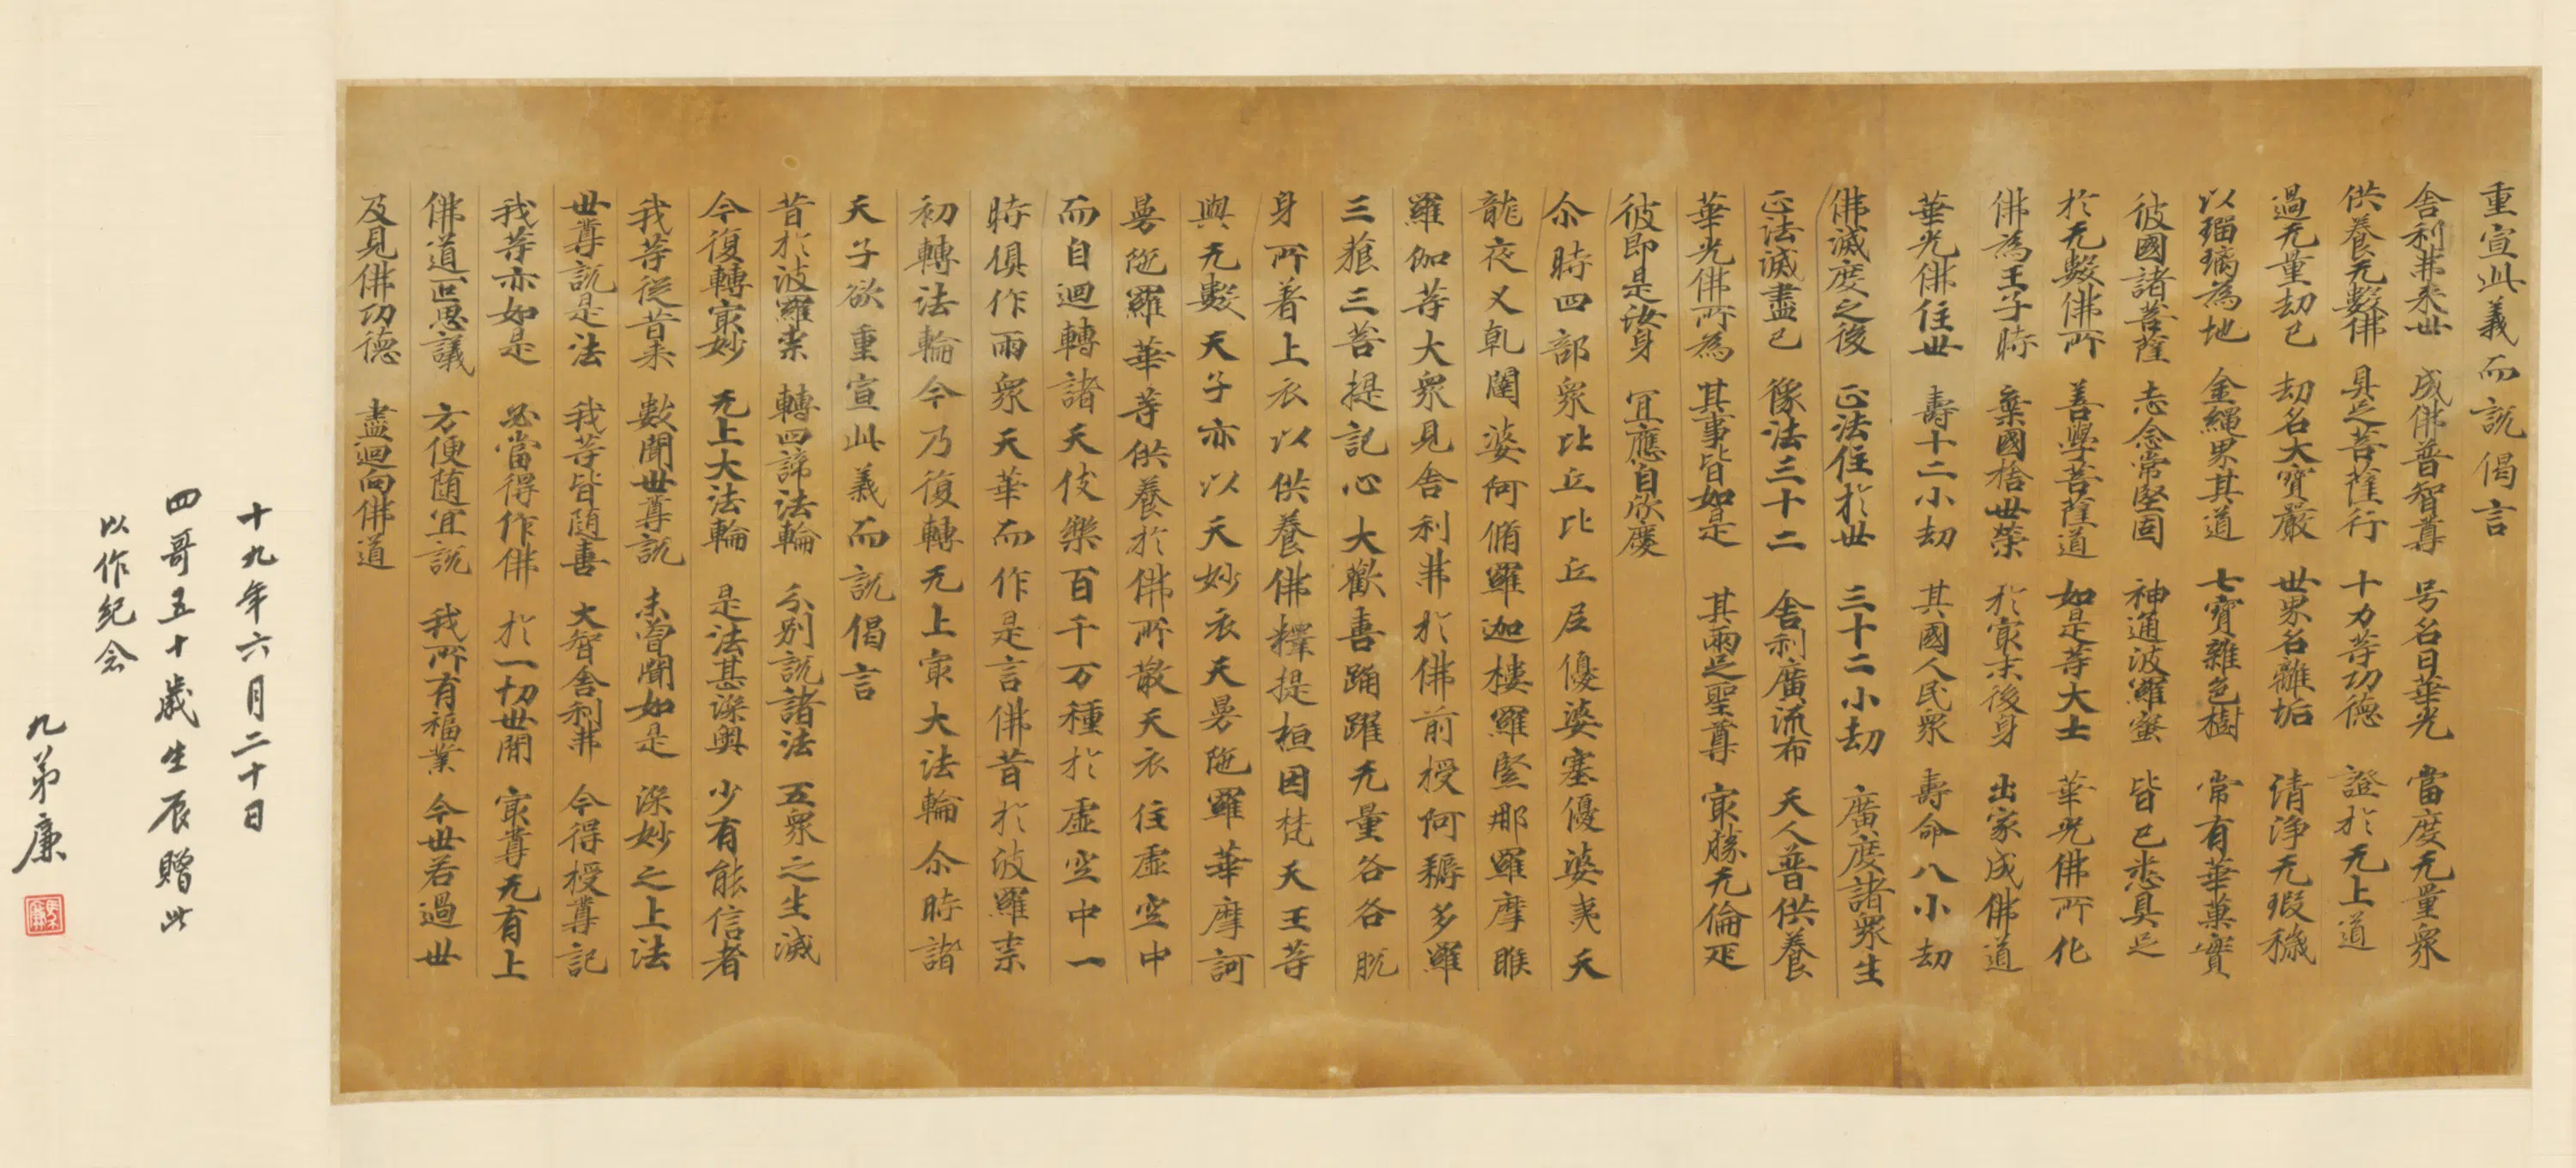 重宣此義而說偈言
舍利弗来世 成佛普智尊 号名曰華光 當度无量衆
供養无數佛 具足菩薩行 十力等功德 證於无上道
過无量劫已 劫名大寶嚴 世界名離垢 清淨无瑕穢
以瑠璃為地 金繩界其道 七寶雜色樹 常有華菓實
彼國諸菩薩 志念常堅固 神通波羅蜜 皆已悉具足
於无數佛所 善學菩薩道 如是等大士 華光佛所化
佛為王子時 棄國捨世榮 於㝡末後身 出家成佛道
華光佛住世 壽十二小劫 其國人民衆 壽命八小劫
佛滅度之後 正法住於世 三十二小劫 廣度諸衆生
正法滅盡已 像法三十二 舍利廣流布 天人普供養
華光佛所為 其事皆如是 其兩足聖尊 㝡勝无倫疋
彼即是汝身 宜應自欣慶
尒時四部衆比丘比丘尼優婆塞優婆夷天
龍夜叉乹闥婆阿脩羅迦樓羅緊那羅摩睺
羅伽等大衆見舍利弗於佛前授阿耨多羅
三藐三菩提記心大歡喜踊躍无量各各脫
身所著上衣以供養佛釋提桓因梵天王等
與无數天子亦以天妙衣天曼陁羅華摩訶
曼陁羅華等供養於佛所散天衣住虛空中
而自迴轉諸天伎樂百千万種於虛空中一
時俱作雨衆天華而作是言佛昔於波羅柰
初轉法輪今乃復轉无上㝡大法輪尒時諸
天子欲重宣此義而說偈言
昔於波羅柰 轉四諦法輪 分別說諸法 五衆之生滅
今復轉㝡妙 无上大法輪 是法甚深奧 少有能信者
我等從昔来 數聞世尊說 未曾聞如是 深妙之上法
世尊說是法 我等皆随喜 大智舍利弗 今得授尊記
我等亦如是 必當得作佛 於一切世間 㝡尊无有上
佛道叵思議 方便随宜說 我所有福業 今世若過世
及見佛功德 盡迴向佛道
十九年六月二十日
四哥五十歲生辰贈此
以作紀念
九弟廉